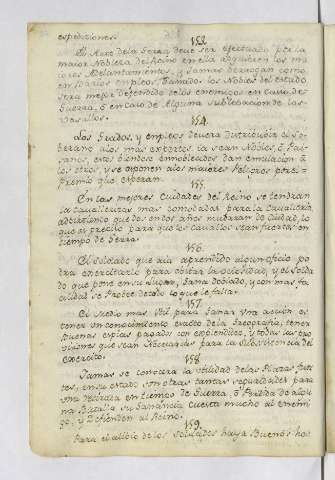 espediciones.
153.
El Arte de la Guerra deve ser efectuado por la
maior Nobleza del Reino en ella adquieren los ma
iores Adelantamientos, y Jamas derrogan como
en barios empleos llamados los Nobles del estado
sera mejor defendido de los enemigos en Caso de
Guerra, ô en caso de Alguna sublebacion de los
Vasallos.
154.
Los Grados, y empleos devera Distribuirlos el So
berano a los mas expertos ia sean Nobles, ô Pai
sanos, estos biendose ennoblecidos dan emulacion â
los otros, y se esponen a los maiores Peligros por el
Premio que esperan.
155.
En las mejores Ciudades del Reino se tendran
las cavallerizas mas comodas para la Cavalleria,
advirtiendo que dos en dos años mudaran de Ciudad, lo
que es preciso para que los Cavallos sean fuertes en
tiempo de Guerra.
156.
El Soldado que aia aprendido algun oficio po
dra exercitarlo para evitar la ociosidad, y el Solda
do que pone en su Lugar, Gana doblado, y con mas fa
cilidad se Probee de todo lo que le falta.
157.
El medio mas Util para Ganar una accion es
tener un conocimiento exacto de la Geografia, tener
buenas espias pagadas con esplendidez, y todas las pro
visiones que sean Necesarias para la Subsistencia del
Exercito.
158.
Jamas se conocera la utilidad de las Plazas fuer
tes, en su estado son otras tantas seguridades para
una retirada en tiempo de Guerra, ô Perdida de alguna
Batalla su Ganancia cuesta mucho al enemi
go, y Defienden al Reino.
159.
Para el alibio de los Soldados haya Buenos hos